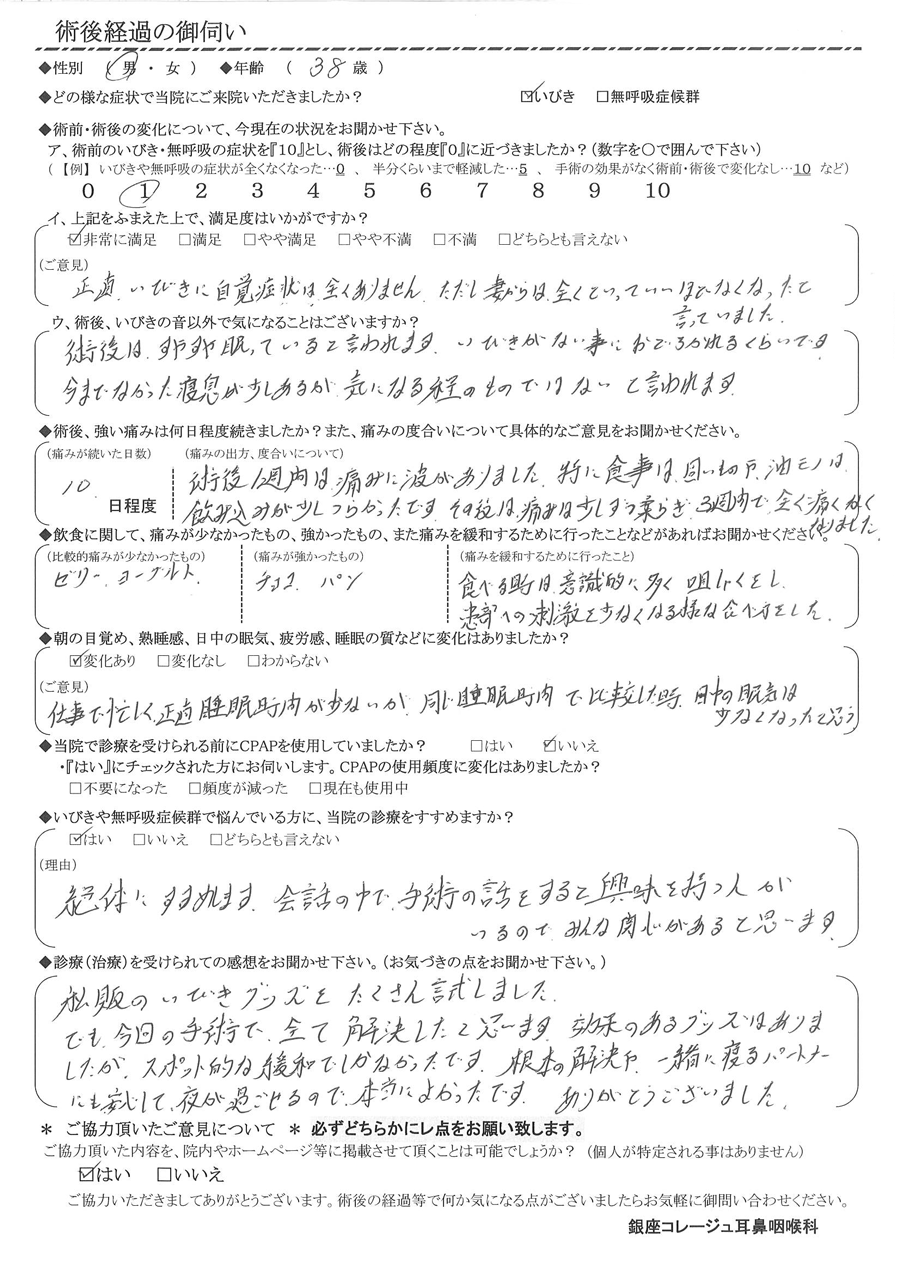 術後経過の御伺い
◆性別 （ 男 ・ 女 ） ◆年齢 （ 38 歳 ）
◆どの様な症状で当院にご来院いただきましたか？ ☑いびき □無呼吸症候群
◆術前・術後の変化について、今現在の状況をお聞かせ下さい。
ア、術前のいびき・無呼吸の症状を『10』とし、術後はどの程度『0』に近づきましたか？（数字を〇で囲んで下さい）
（【例】 いびきや無呼吸の症状が全くなくなった…0 、 半分くらいまで軽減した…5 、 手術の効果がなく術前・術後で変化なし…10 など）
0 1 2 3 4 5 6 7 8 9 10
イ、上記をふまえた上で、満足度はいかがですか？
☑非常に満足 □満足 □やや満足 □やや不満 □不満 □どちらとも言えない
（ご意見）
正直、いびきに自覚症状は全くありません。ただし妻からは、全くといっていいほどなくなったと
言っていました。
ウ、術後、いびきの音以外で気になることはございますか？
術後は、すやすや眠っていると言われます。いびきがない事におどろかれるくらいです。
今までなかった寝息が少しあるが、気になる程のものではないと言われます。
◆術後、強い痛みは何日程度続きましたか？また、痛みの度合いについて具体的なご意見をお聞かせください。
（痛みが続いた日数） （痛みの出方、度合いについて）
10 日程度
術後1週内は、痛みに波がありました。特に食事は、固いものや、油モノは、
飲み込みが少しつらかったです。その後は、痛みは少しずつ柔らぎ、3週内で全く痛くなく
なりました。
◆飲食に関して、痛みが少なかったもの、強かったもの、また痛みを緩和するために行ったことなどがあればお聞かせください。
（比較的痛みが少なかったもの） （痛みが強かったもの） （痛みを緩和するために行ったこと）
ゼリー、ヨーグルト、 チョコ、パン 食べる時は、意識的に多く咀しゃくをし、
患部への刺激を少なくなる様な食べ方をした。
◆朝の目覚め、熟睡感、日中の眠気、疲労感、睡眠の質などに変化はありましたか？
☑変化あり □変化なし □わからない
（ご意見）
仕事で忙しく、正直睡眠時間が少ないが、同じ睡眠時間で比較した時、日中の眠気は
少なくなったと思う
◆当院で診療を受けられる前にCPAPを使用していましたか？ □はい ☑いいえ
・『はい』にチェックされた方にお伺いします。CPAPの使用頻度に変化はありましたか？
□不要になった □頻度が減った □現在も使用中
◆いびきや無呼吸症候群で悩んでいる方に、当院の診療をすすめますか？
☑はい □いいえ □どちらとも言えない
（理由）
絶体にすすめます。会話の中で、手術の話をすると興味を持つ人が
いるので、みんな関心があると思います。
◆診療（治療）を受けられての感想をお聞かせ下さい。（お気づきの点をお聞かせ下さい。）
私販のいびきグッズをたくさん試しました。
でも、今回の手術で、全て解決したと思います。効果のあるグッズはありま
したが、スポット的な緩和でしかなかったです。根本の解決や、一緒に寝るパートナー
にも安心して、夜が過ごせるので、本当によかったです。ありがとうございました。
＊ ご協力頂いたご意見について ＊ 必ずどちらかにレ点をお願い致します。
ご協力頂いた内容を、院内やホームページ等に掲載させて頂くことは可能でしょうか？（個人が特定される事はありません）
☑はい □いいえ
ご協力いただきましてありがとうございます。術後の経過等で何か気になる点がございましたらお気軽に御問い合わせください。
銀座コレージュ耳鼻咽喉科